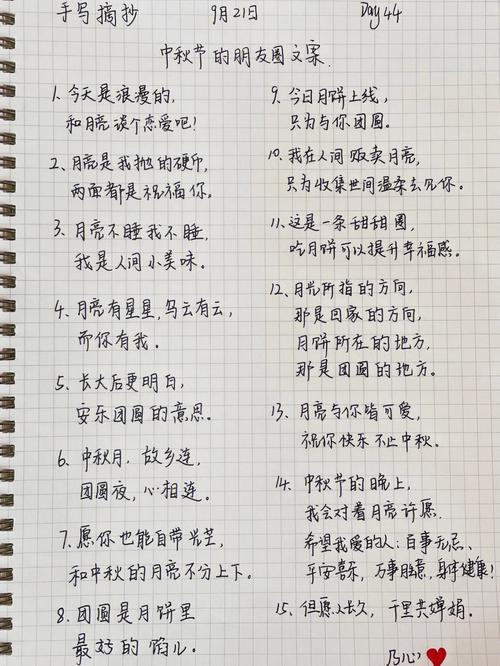 手写摘抄 9月21日 Day44
中秋节的朋友圈文案.
1. 今天是浪漫的,
和月亮谈个恋爱吧!
2. 月亮是我抛的硬币,
两面都是祝福你。
3. 月亮不睡我不睡,
我是人间小美味。
4. 月亮有星星,乌云有云,
而你有我。
5. 长大后更明白,
安乐团圆的意思。
6. 中秋月,故乡连,
团圆夜,心相连。
7. 愿你也能自带光芒,
和中秋的月亮不分上下。
8. 团圆是月饼里
最好的馅儿。
9. 今日月饼上线,
只为与你团圆。
10. 我在人间贩卖月亮,
只为收集世间温柔去见你。
11. 这是一条甜甜圈,
吃月饼可以提升幸福感。
12. 月光所指的方向,
那是回家的方向,
月饼所在的地方,
那是团圆的地方。
13. 月亮与你皆可爱,
祝你快乐不止中秋。
14. 中秋节的晚上,
我会对着月亮许愿.
希望我爱的人:百事无忌、
平安喜乐,万事胜意,身体健康!
15. 但愿人长久,千里共婵娟.